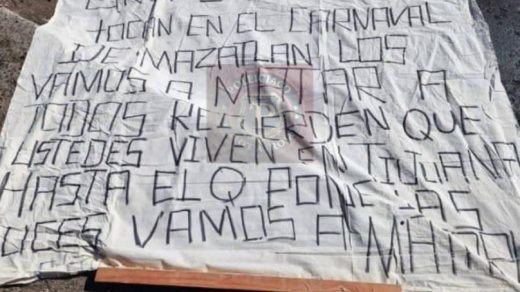 TOCAN EN EL CARNAVAL
DE MAZATLAN LOS
VAMOS A MATAR A
TODOS RECUERDEN QUE
USTEDES VIVEN EN TIJUANA
HASTA EL Q PONE LAS
LUCES VAMOS A MATAR